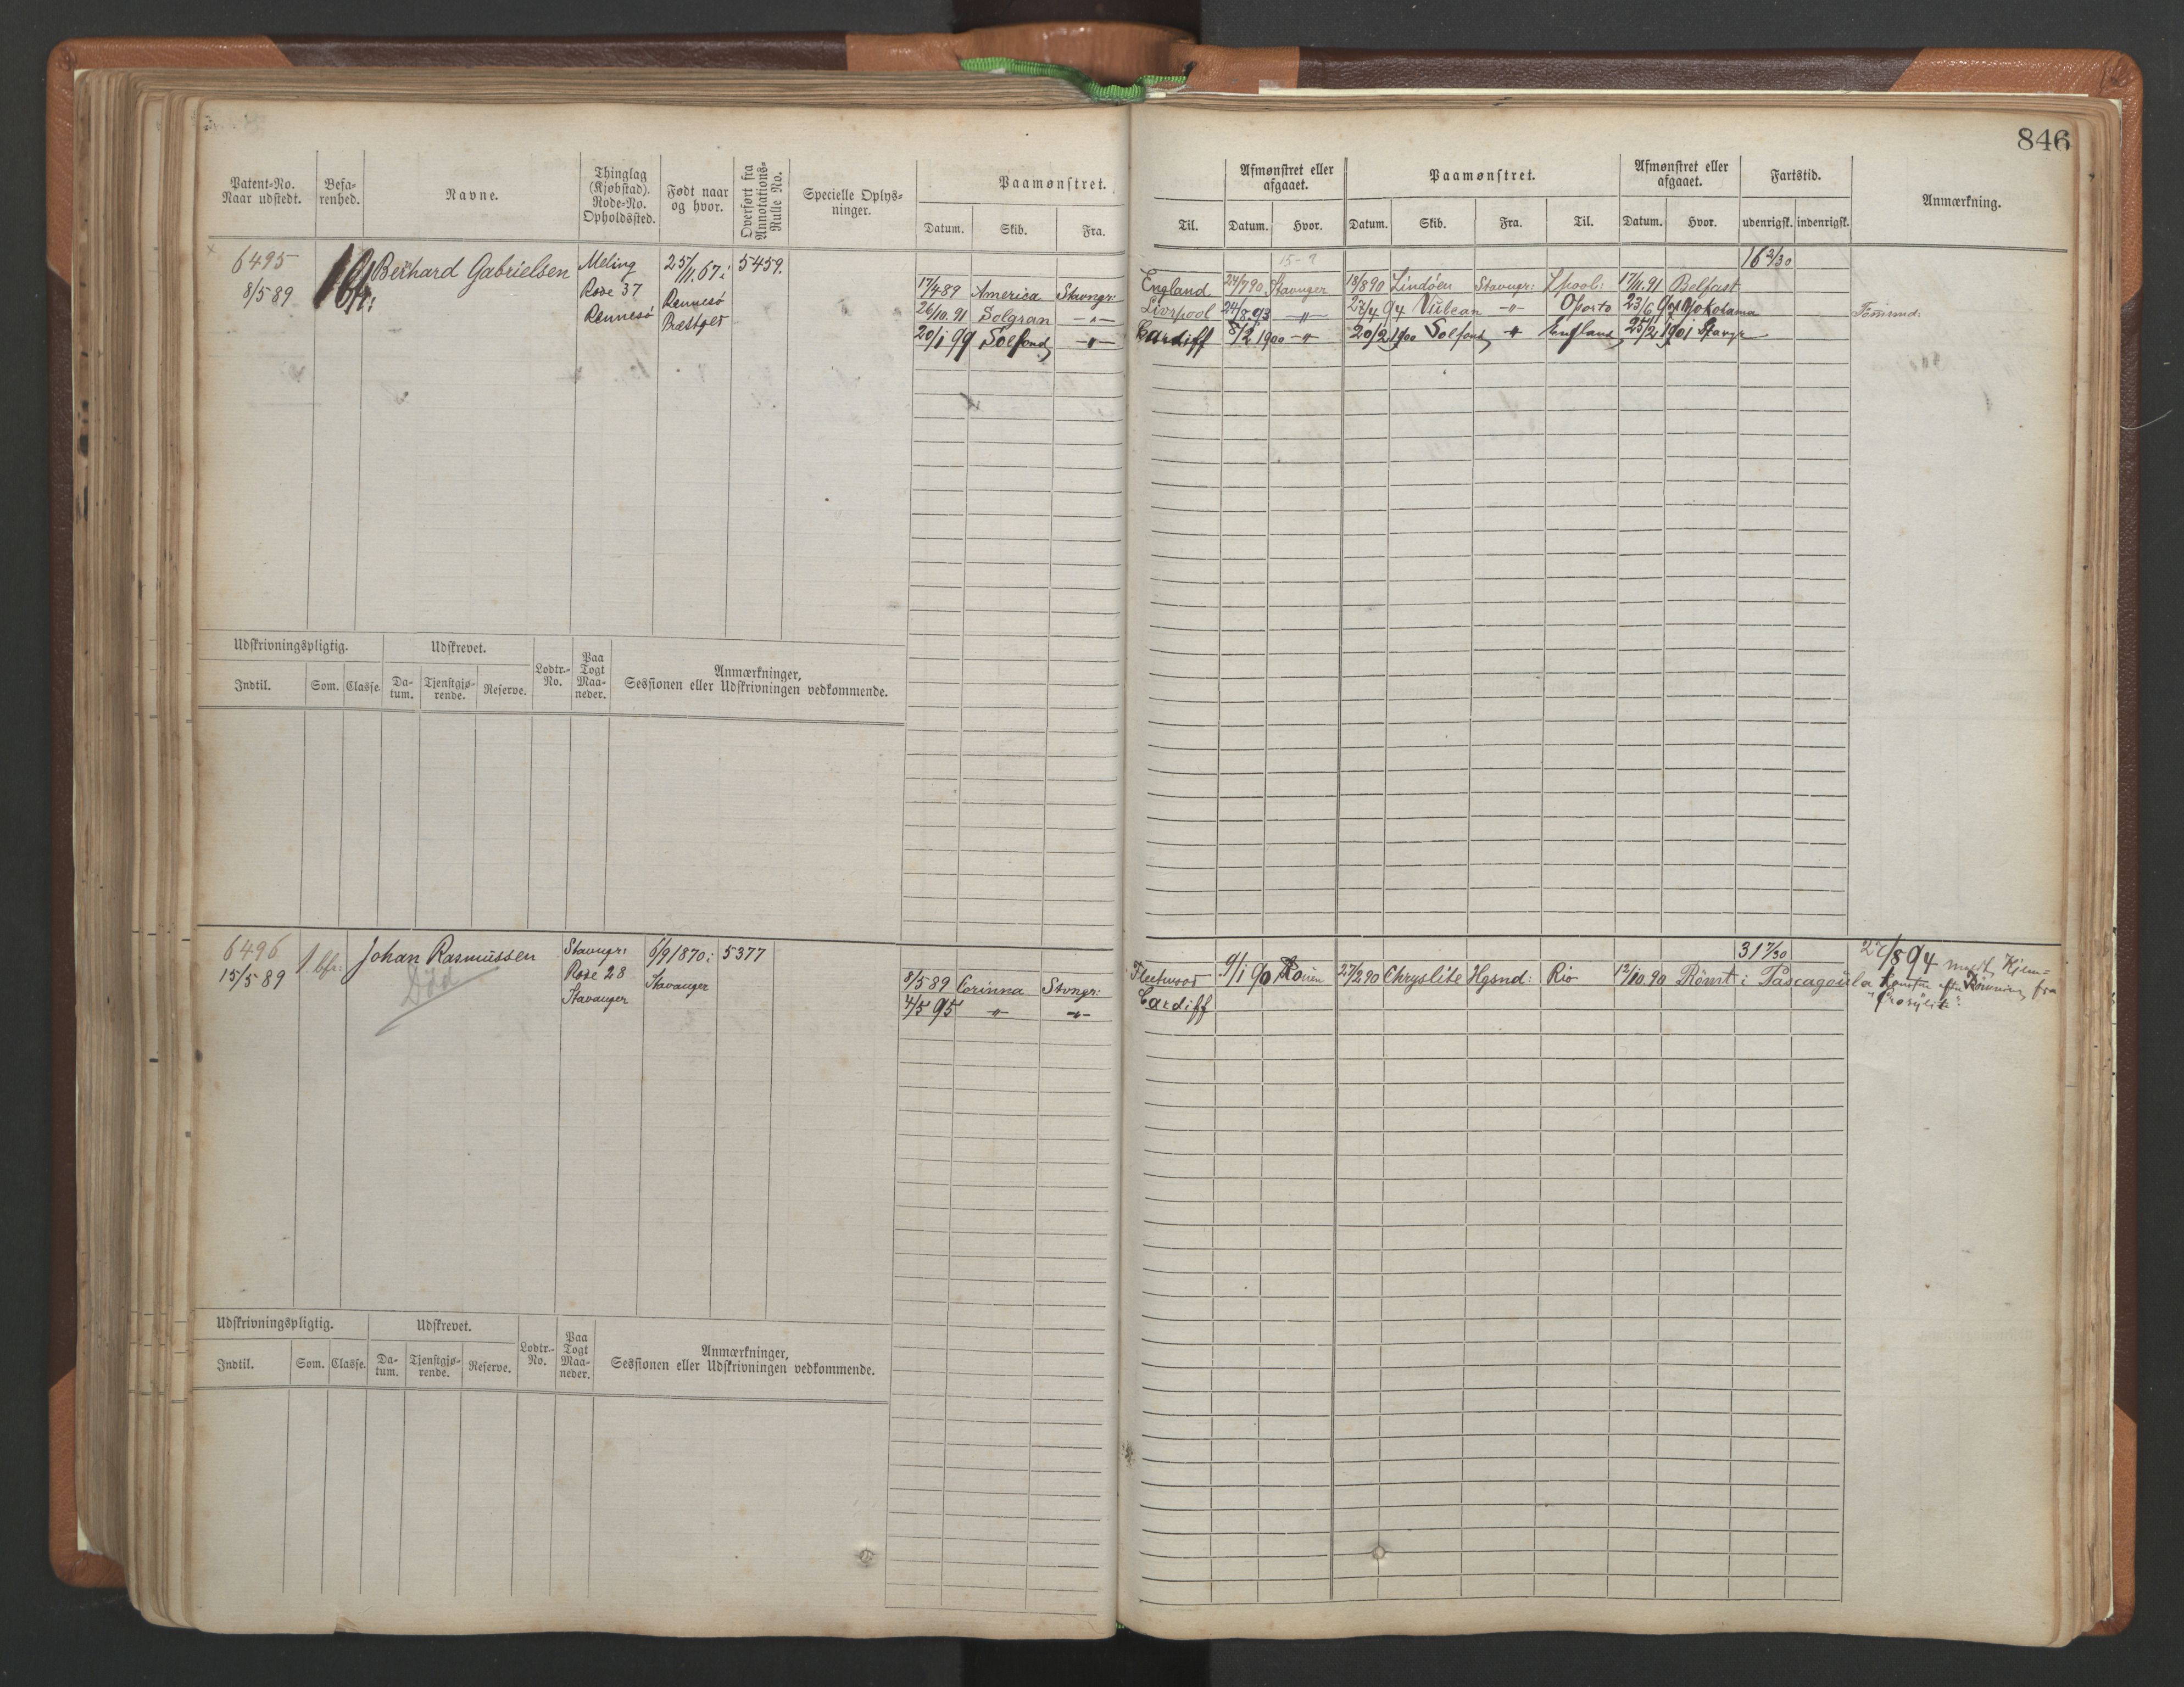 846
Patent-No. Naar udstedt.
Befarenhed.
Navne.
Thinglag (Kjøbstad). Rode-No. Opholdssted.
Født naar og hvor.
Overført fra Annotations-Rulle No.
Specielle Oplysninger.
Paamønstret.
Datum. Skib. Fra. Til.
Afmønstret eller afgaaet.
Datum. Hvor.
Paamønstret.
Datum. Skib. Fra. Til.
Afmønstret eller afgaaet.
Datum. Hvor.
Fartstid.
udenrigsk. indenrigsk.
Anmærkning.
6495 Berhard Gabrielsen Meling 25/11.67 i 5459.
8/5 89 Rode 37 Rennesö
Rennesö Præstgld
15-7
17/4 89 America Stavngr: England 24/7 90 Stavanger 18/8 90 Lindöen Stavngr: Lpool: 17/11.91 Belfast
26/10.91 Solgran —"— Liverpool 24/8.93 —"— 27/4 94 Vulcan —"— Oporto 23/6 Yokohama
20/1 99 Solfond —"— Cardiff 8/2 1900 —"— 20/2 1900 Solfond " England 25/2 1901 Stavgr
Udskrivningspligtig.
Indtil. Som. Classe.
Udskrevet.
Datum. Tjenstgjørende. Reserve.
Lodtr.-No.
Paa Togt Maaneder.
Anmærkninger, Sessionen eller Udskrivningen vedkommende.
6496 1 bfr: Johan Rasmussen Stavngr: 6/9 1870 i 5377
15/5 89 Död Rode 28 Stavanger
Stavanger
31 7/30
8/5 89 Corinna Stvngr: Fleetwood 9/1 90 Rouen 27/2 90 Chryslite Hgsnd: Rio 12/10.90 Römt i Pascagoula
4/5 95 —"— —"— Cardiff
27/8 94
fra
Udskrivningspligtig.
Indtil. Som. Classe.
Udskrevet.
Datum. Tjenstgjørende. Reserve.
Lodtr.-No.
Paa Togt Maaneder.
Anmærkninger, Sessionen eller Udskrivningen vedkommende.